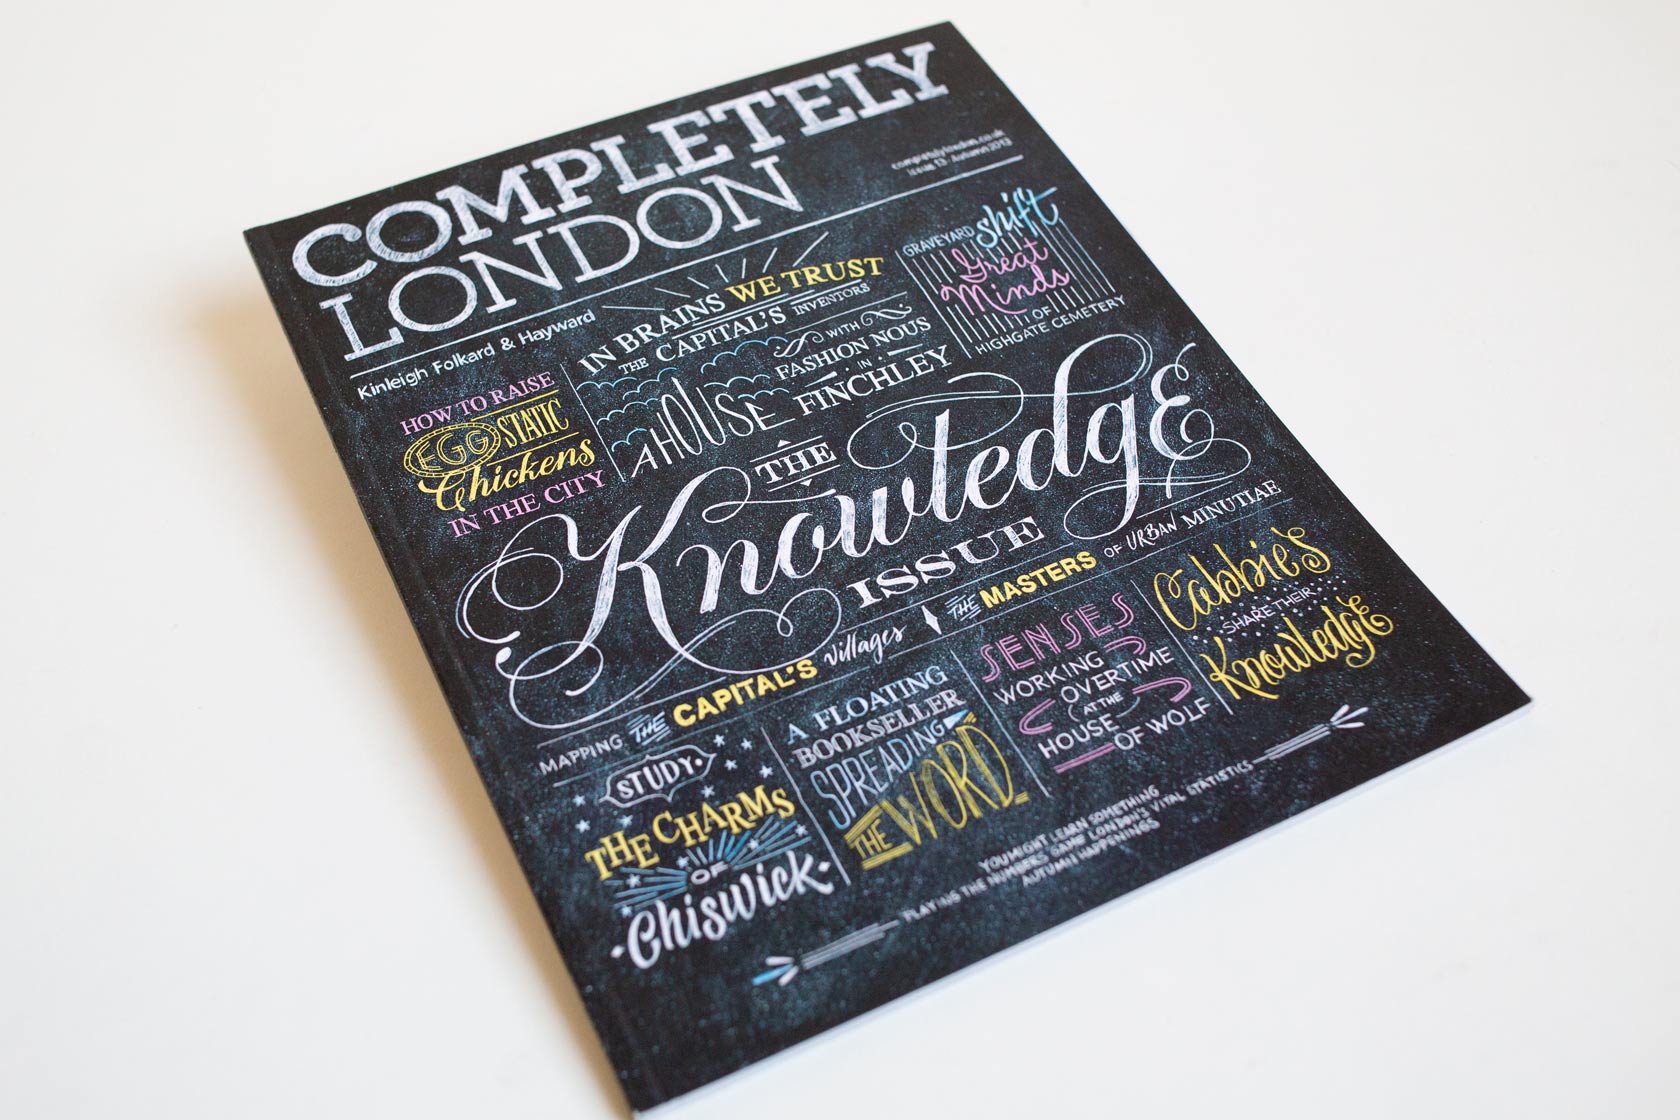 COMPLETELY
LONDON
completelylondon.co.uk
Issue 13 · Autumn 2013
Kinleigh Folkard & Hayward
HOW TO RAISE
EGG STATIC
Chickens
IN THE CITY
IN BRAINS WE TRUST
THE CAPITAL'S INVENTORS
A HOUSE
WITH
FASHION NOUS
IN
FINCHLEY
GRAVEYARD shift
Great
Minds
OF
HIGHGATE CEMETERY
THE
KnowledgE
ISSUE
MAPPING THE CAPITAL'S villages
THE MASTERS OF URBAN MINUTIAE
STUDY
THE CHARMS
OF
Chiswick
A FLOATING
BOOKSELLER
SPREADING
THE WORD
SENSES
WORKING
OVERTIME
AT THE
HOUSE
OF WOLF
CabbiE'S
SHARE THEIR
KnowledgE
YOU MIGHT LEARN SOMETHING
PLAYING THE NUMBERS GAME LONDON'S VITAL STATISTICS
AUTUMN HAPPENINGS